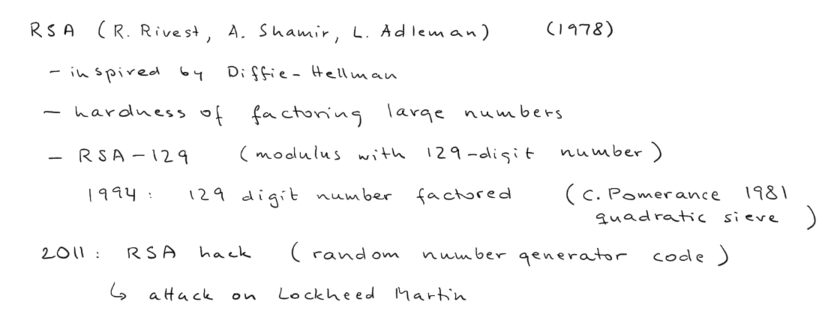 RSA (R. Rivest, A. Shamir, L. Adleman) (1978)
- inspired by Diffie-Hellman
- hardness of factoring large numbers
- RSA-129 (modulus with 129-digit number)
1994: 129 digit number factored (C. Pomerance 1981
quadratic sieve)
2011: RSA hack (random number generator code)
↳ attack on Lockheed Martin